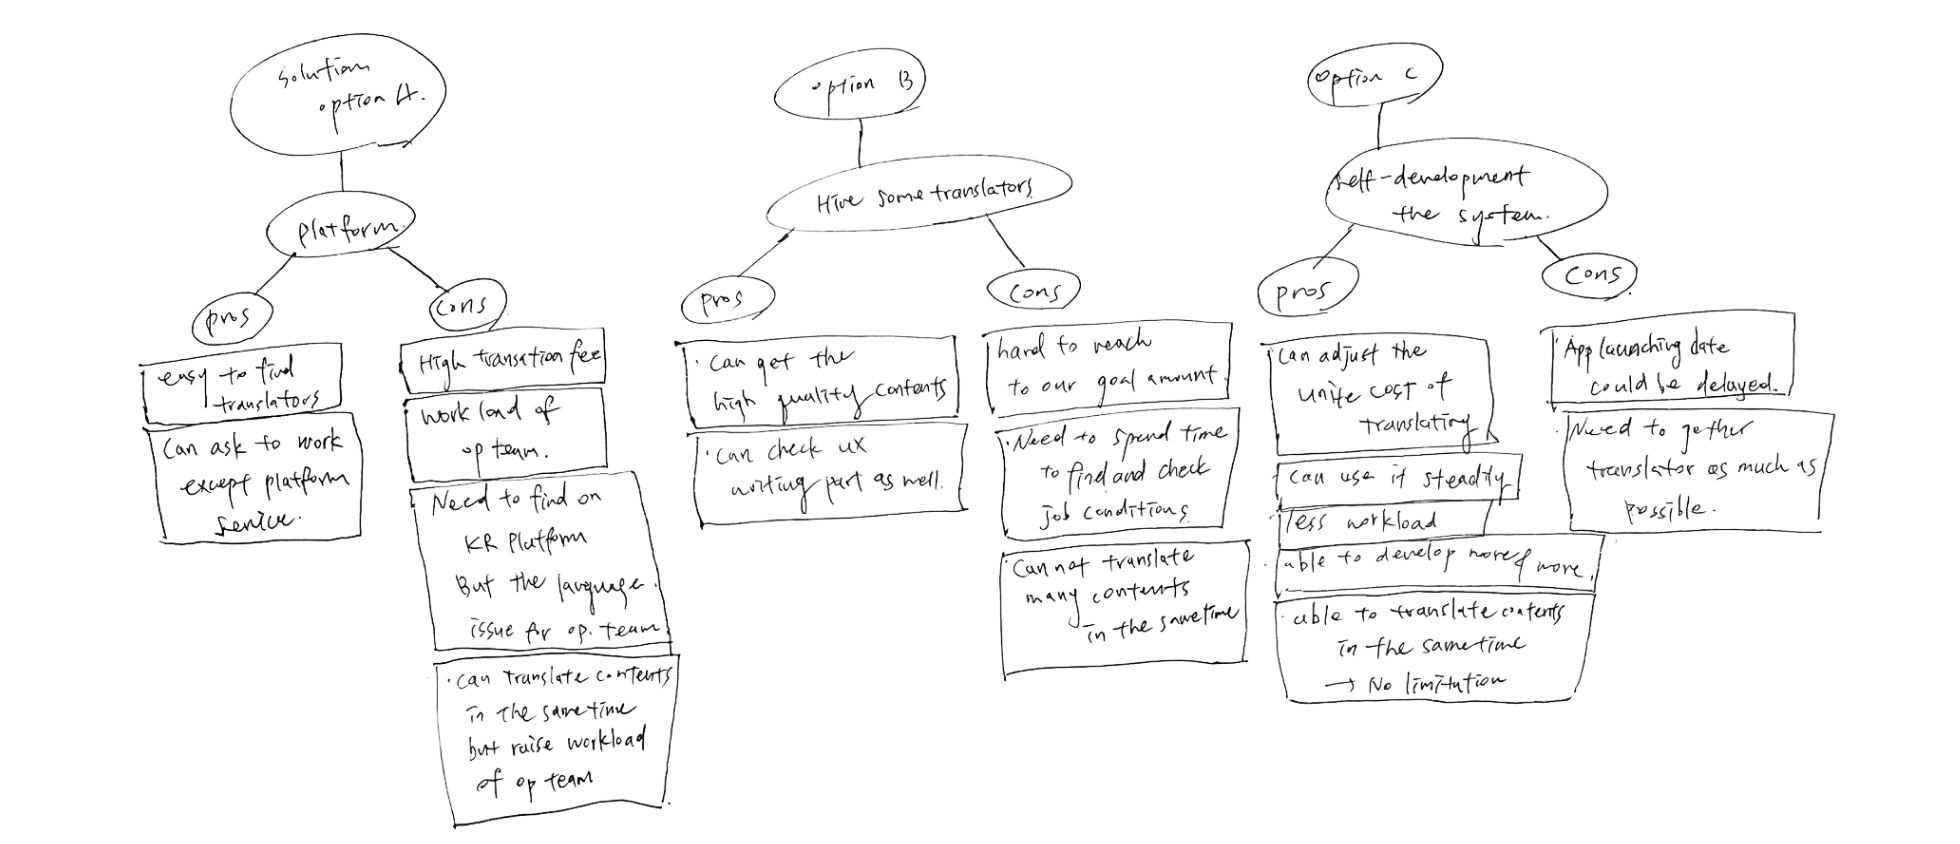 solution
option A.
platform.
pros
easy to find
translators
Can ask to work
except platform
service.
cons
High transation fee
workload of
op team.
Need to find on
KR Platform
But the language
issue for op. team
· can translate contents
in the sametime
but raise workload
of op team
option B
Hire some translators
pros
· Can get the
high quality contents
· Can check ux
writing part as well.
cons
hard to reach
to our goal amount.
· Need to spend time
to find and check
job conditions.
· Can not translate
many contents
in the sametime
option c
self-development
the system.
pros
Can adjust the
unite cost of
translating
can use it steadily
· less workload
· able to develop more & more.
· able to translate contents
in the sametime
→ No limitation
cons
· App launching date
could be delayed.
· Need to gether
translator as much as
possible.